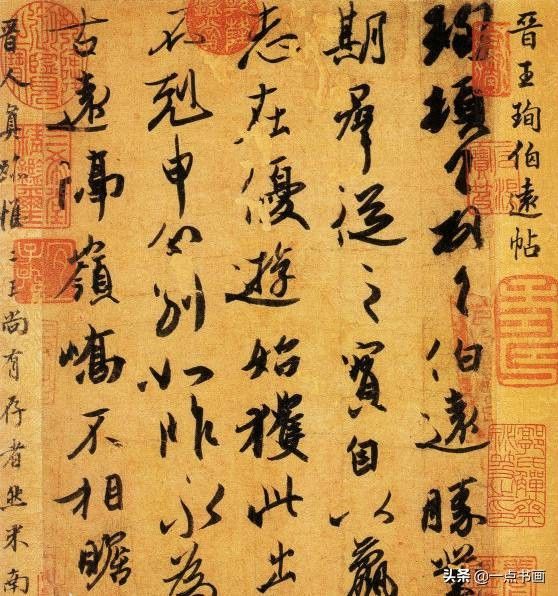 晉王珣伯遠帖
珣頓首頓首伯遠勝業
期羣從之寶自以羸
志在優遊始獲此出
不剋申分別如昨永為
古遠隔嶺嶠不相瞻
晉人真跡惟二王尚有存者然米南
头条 @一点书画